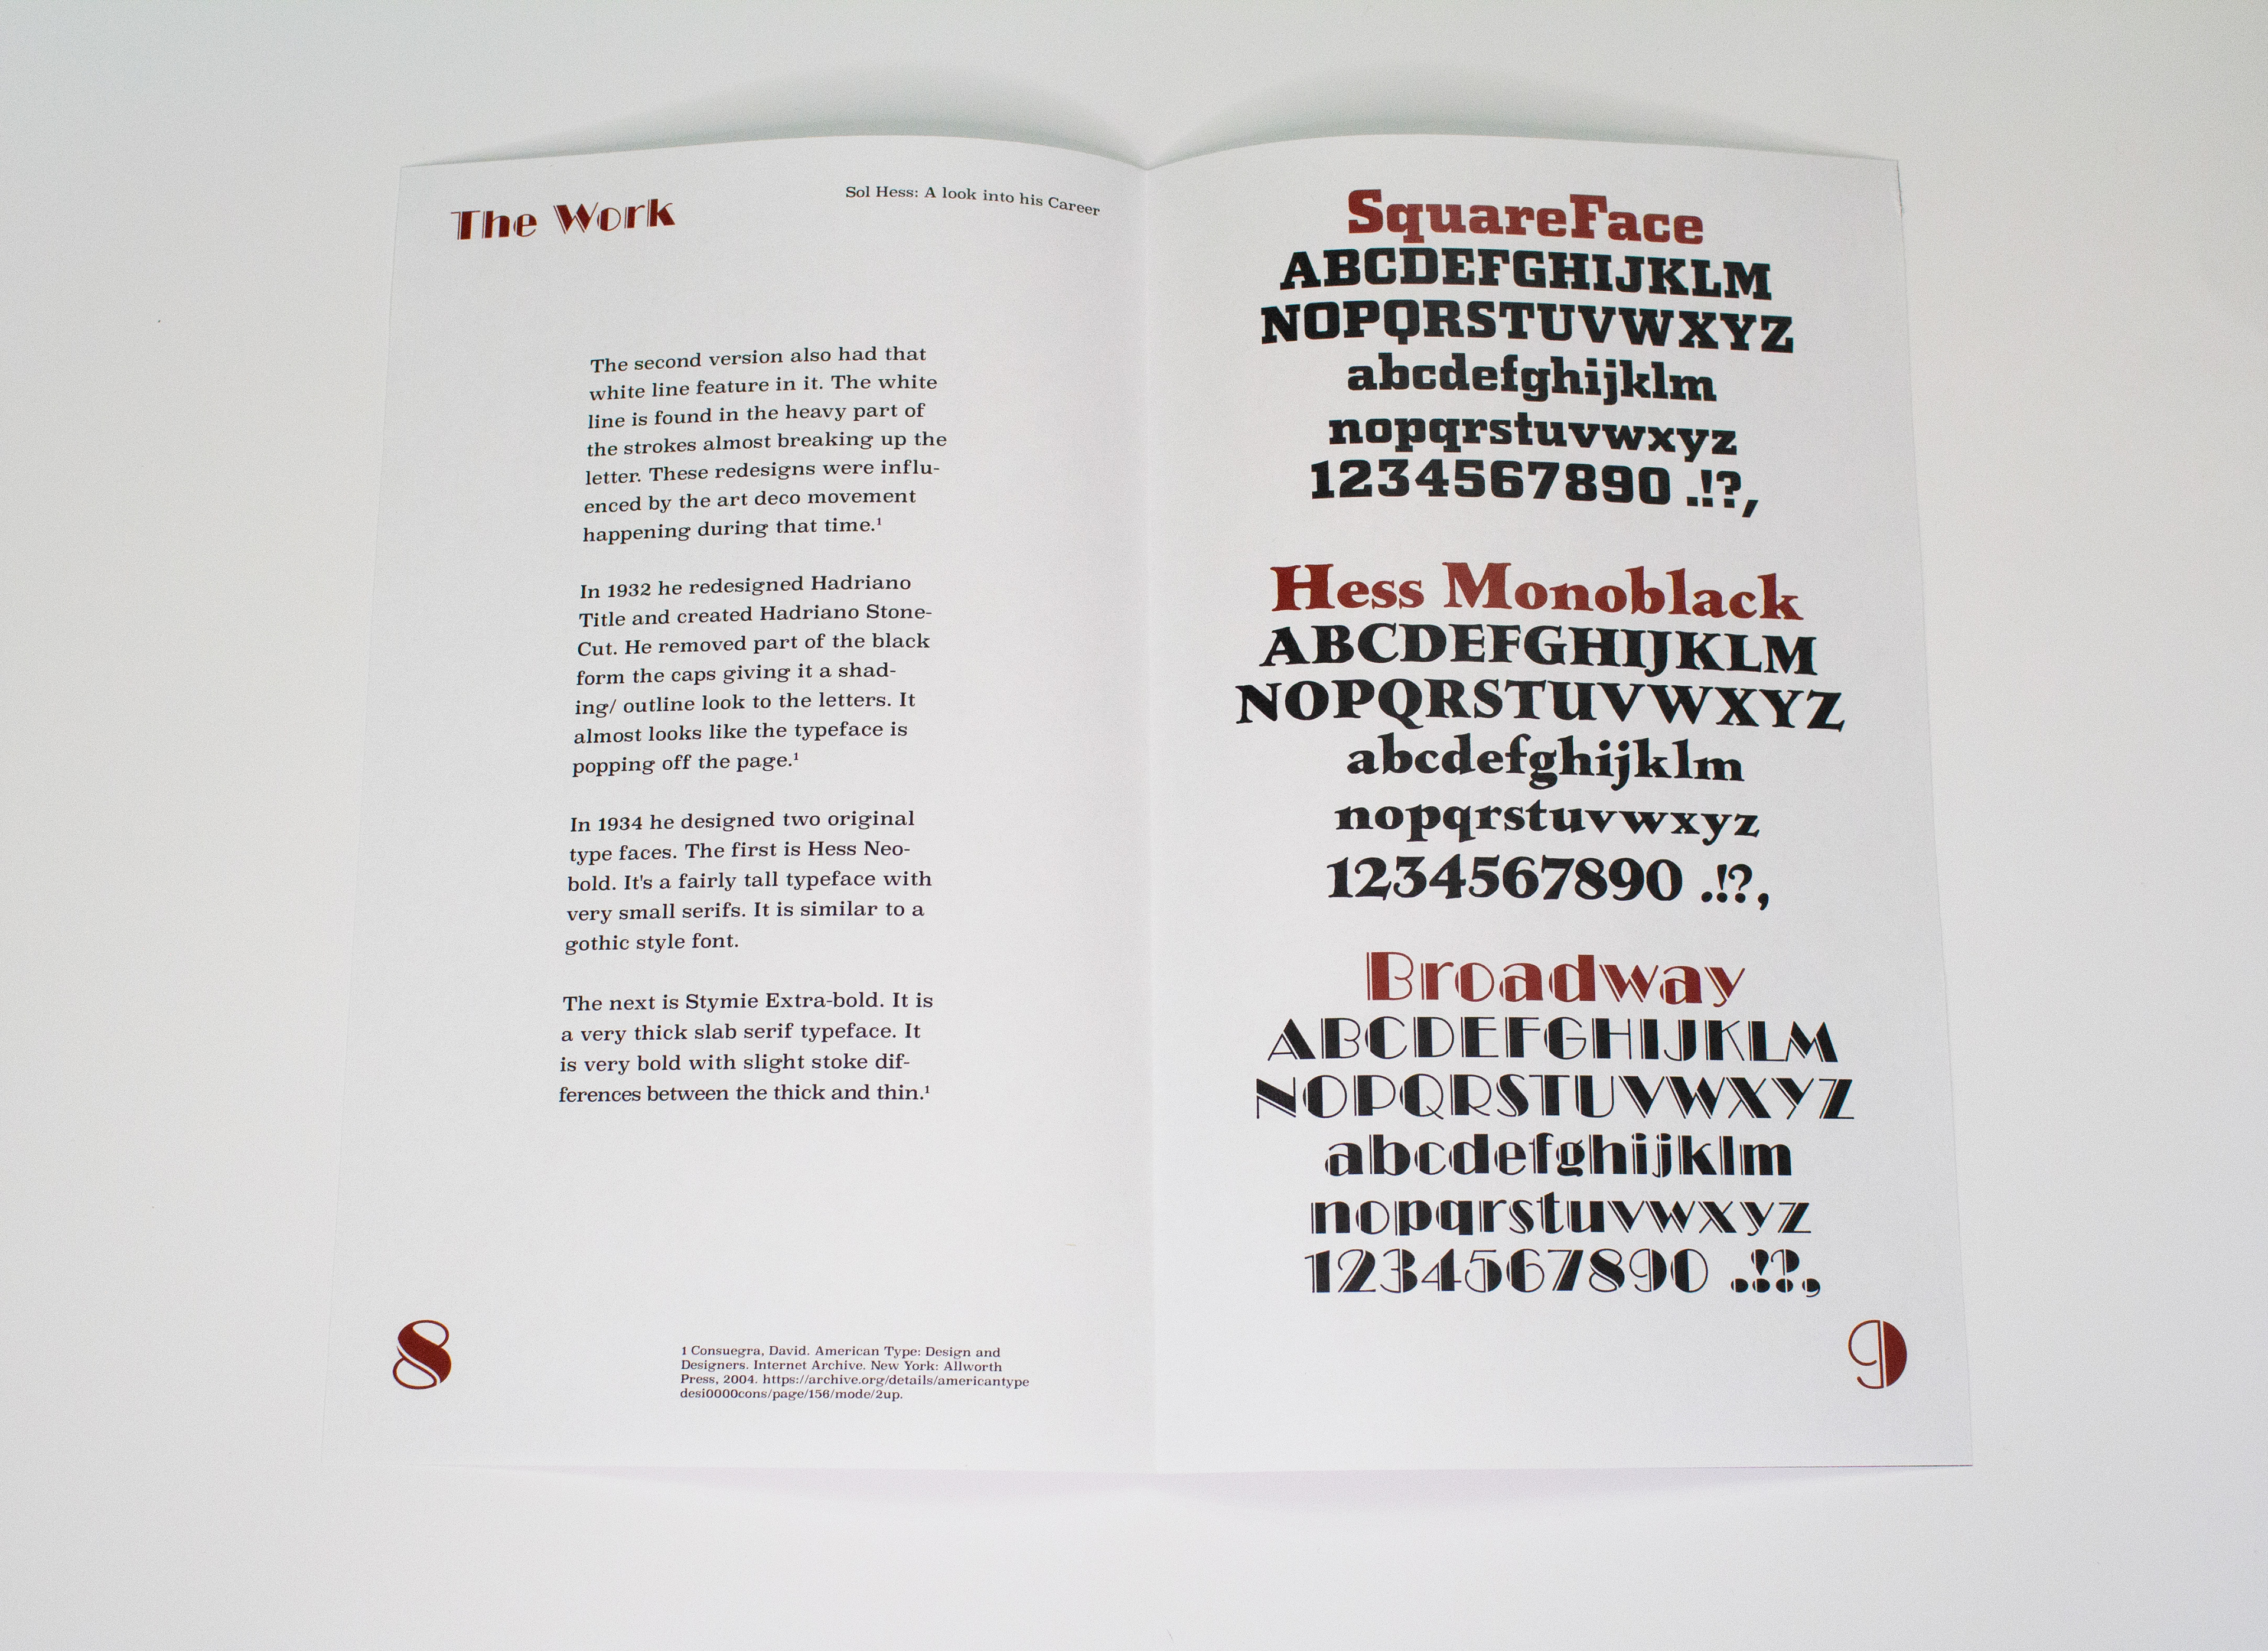 The Work
Sol Hess: A look into his Career
The second version also had that
white line feature in it. The white
line is found in the heavy part of
the strokes almost breaking up the
letter. These redesigns were influ-
enced by the art deco movement
happening during that time.¹
In 1932 he redesigned Hadriano
Title and created Hadriano Stone-
Cut. He removed part of the black
form the caps giving it a shad-
ing/ outline look to the letters. It
almost looks like the typeface is
popping off the page.¹
In 1934 he designed two original
type faces. The first is Hess Neo-
bold. It's a fairly tall typeface with
very small serifs. It is similar to a
gothic style font.
The next is Stymie Extra-bold. It is
a very thick slab serif typeface. It
is very bold with slight stoke dif-
ferences between the thick and thin.¹
8
1 Consuegra, David. American Type: Design and
Designers. Internet Archive. New York: Allworth
Press, 2004. https://archive.org/details/americantype
desi0000cons/page/156/mode/2up.
SquareFace
ABCDEFGHIJKLM
NOPQRSTUVWXYZ
abcdefghijklm
nopqrstuvwxyz
1234567890 .!?,
Hess Monoblack
ABCDEFGHIJKLM
NOPQRSTUVWXYZ
abcdefghijklm
nopqrstuvwxyz
1234567890 .!?,
Broadway
ABCDEFGHIJKLM
NOPQRSTUVWXYZ
abcdefghijklm
nopqrstuvwxyz
1234567890 .!?,
9